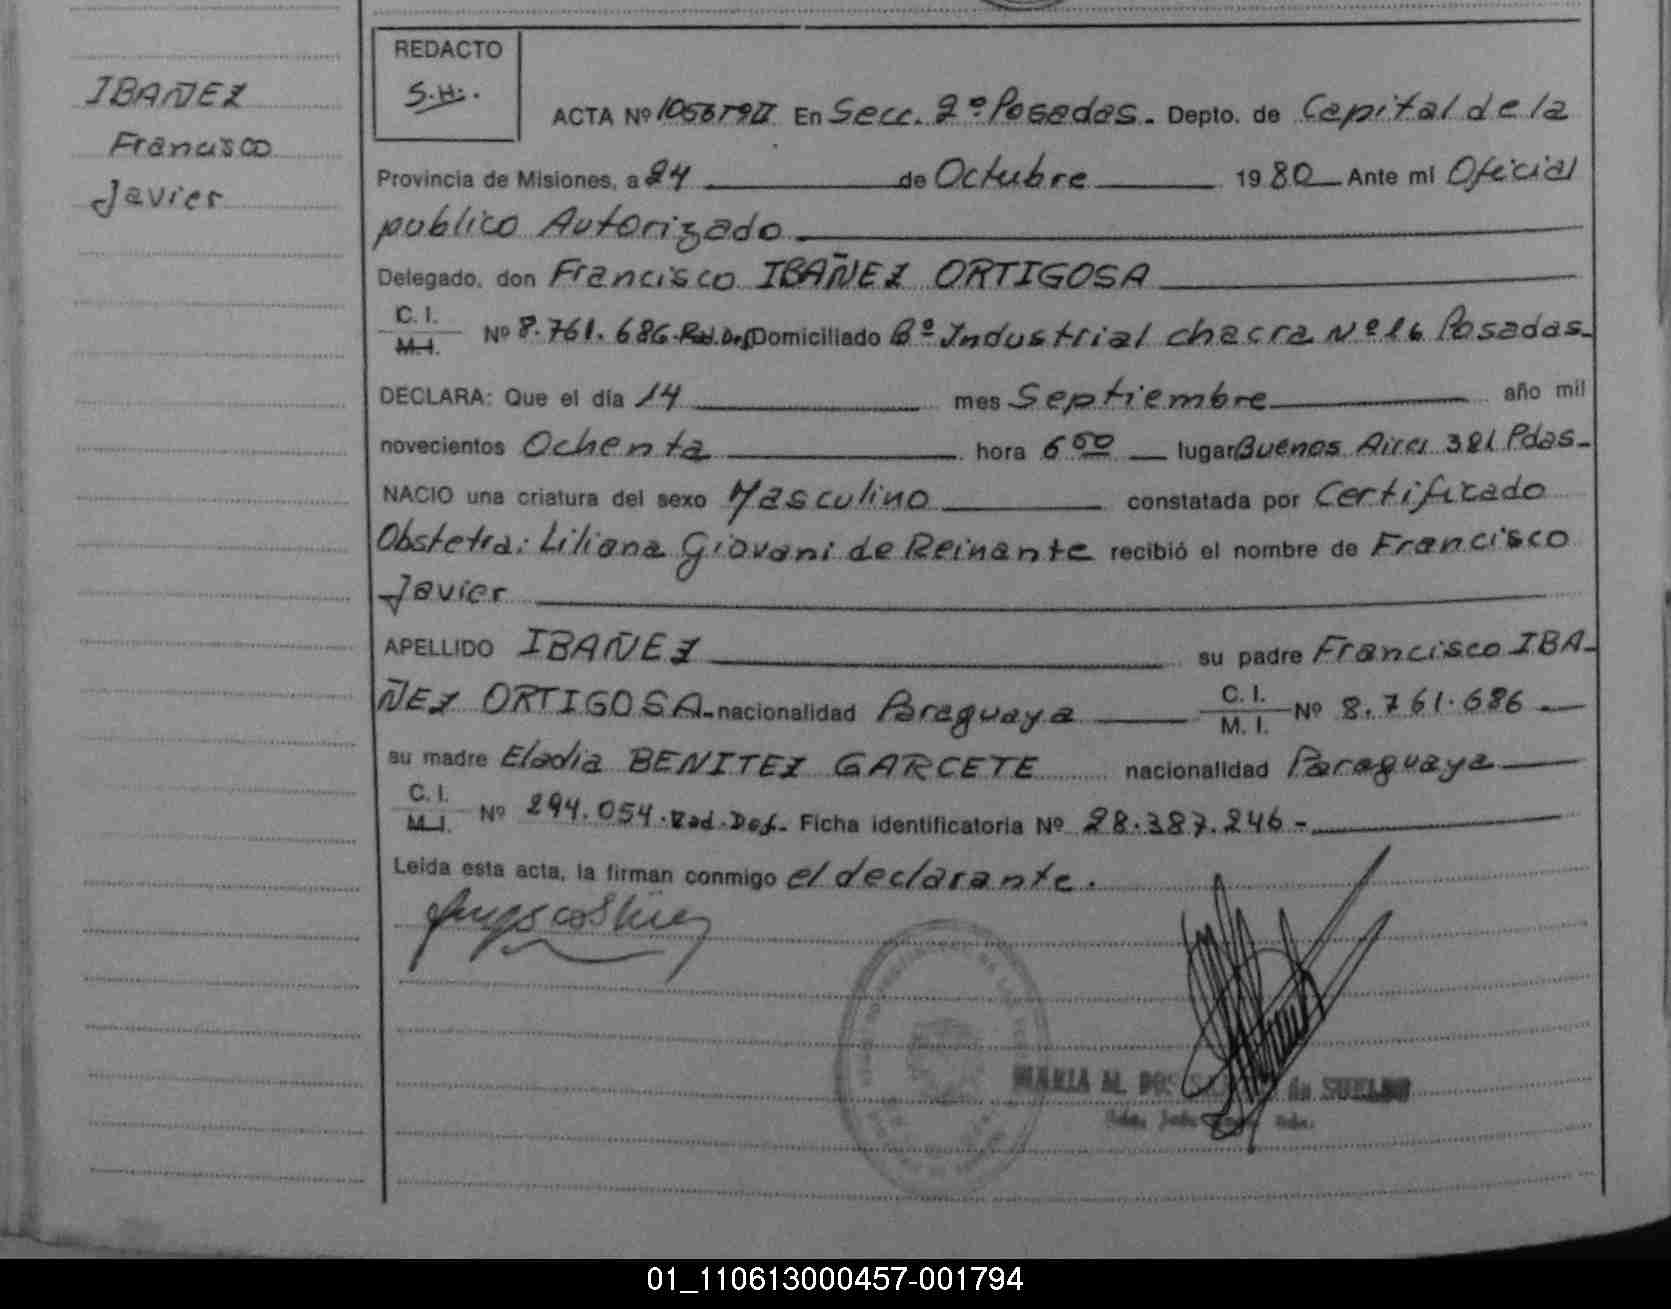 IBAÑEZ
Francisco
Javier
REDACTO
S.H.
ACTA Nº 1056 Tº II En Secc. 2º Posadas. Depto. de Capital de la
Provincia de Misiones, a 24 de Octubre 1980 Ante mi Oficial
publico Autorizado
Delegado, don Francisco IBAÑEZ ORTIGOSA
C. I.
M. I. Nº 8.761.686. Rad. Def Domiciliado Bº Industrial chacra Nº 16 Posadas.
DECLARA: Que el día 14 mes Septiembre año mil
novecientos Ochenta hora 6 lugar Buenos Aires 381 Pdas.
NACIO una criatura del sexo Masculino constatada por Certificado
Obstetra: Liliana Giovani de Reinante recibió el nombre de Francisco
Javier
APELLIDO IBAÑEZ su padre Francisco IBA-
ÑEZ ORTIGOSA. nacionalidad Paraguaya C. I.
M. I. Nº 8.761.686
su madre Eladia BENITEZ GARCETE nacionalidad Paraguaya
C. I.
M. I. Nº 294.054. Rad. Def. Ficha identificatoria Nº 28.387.246 -
Leída esta acta, la firman conmigo el declarante.
MARIA M. DOS de
01_110613000457-001794